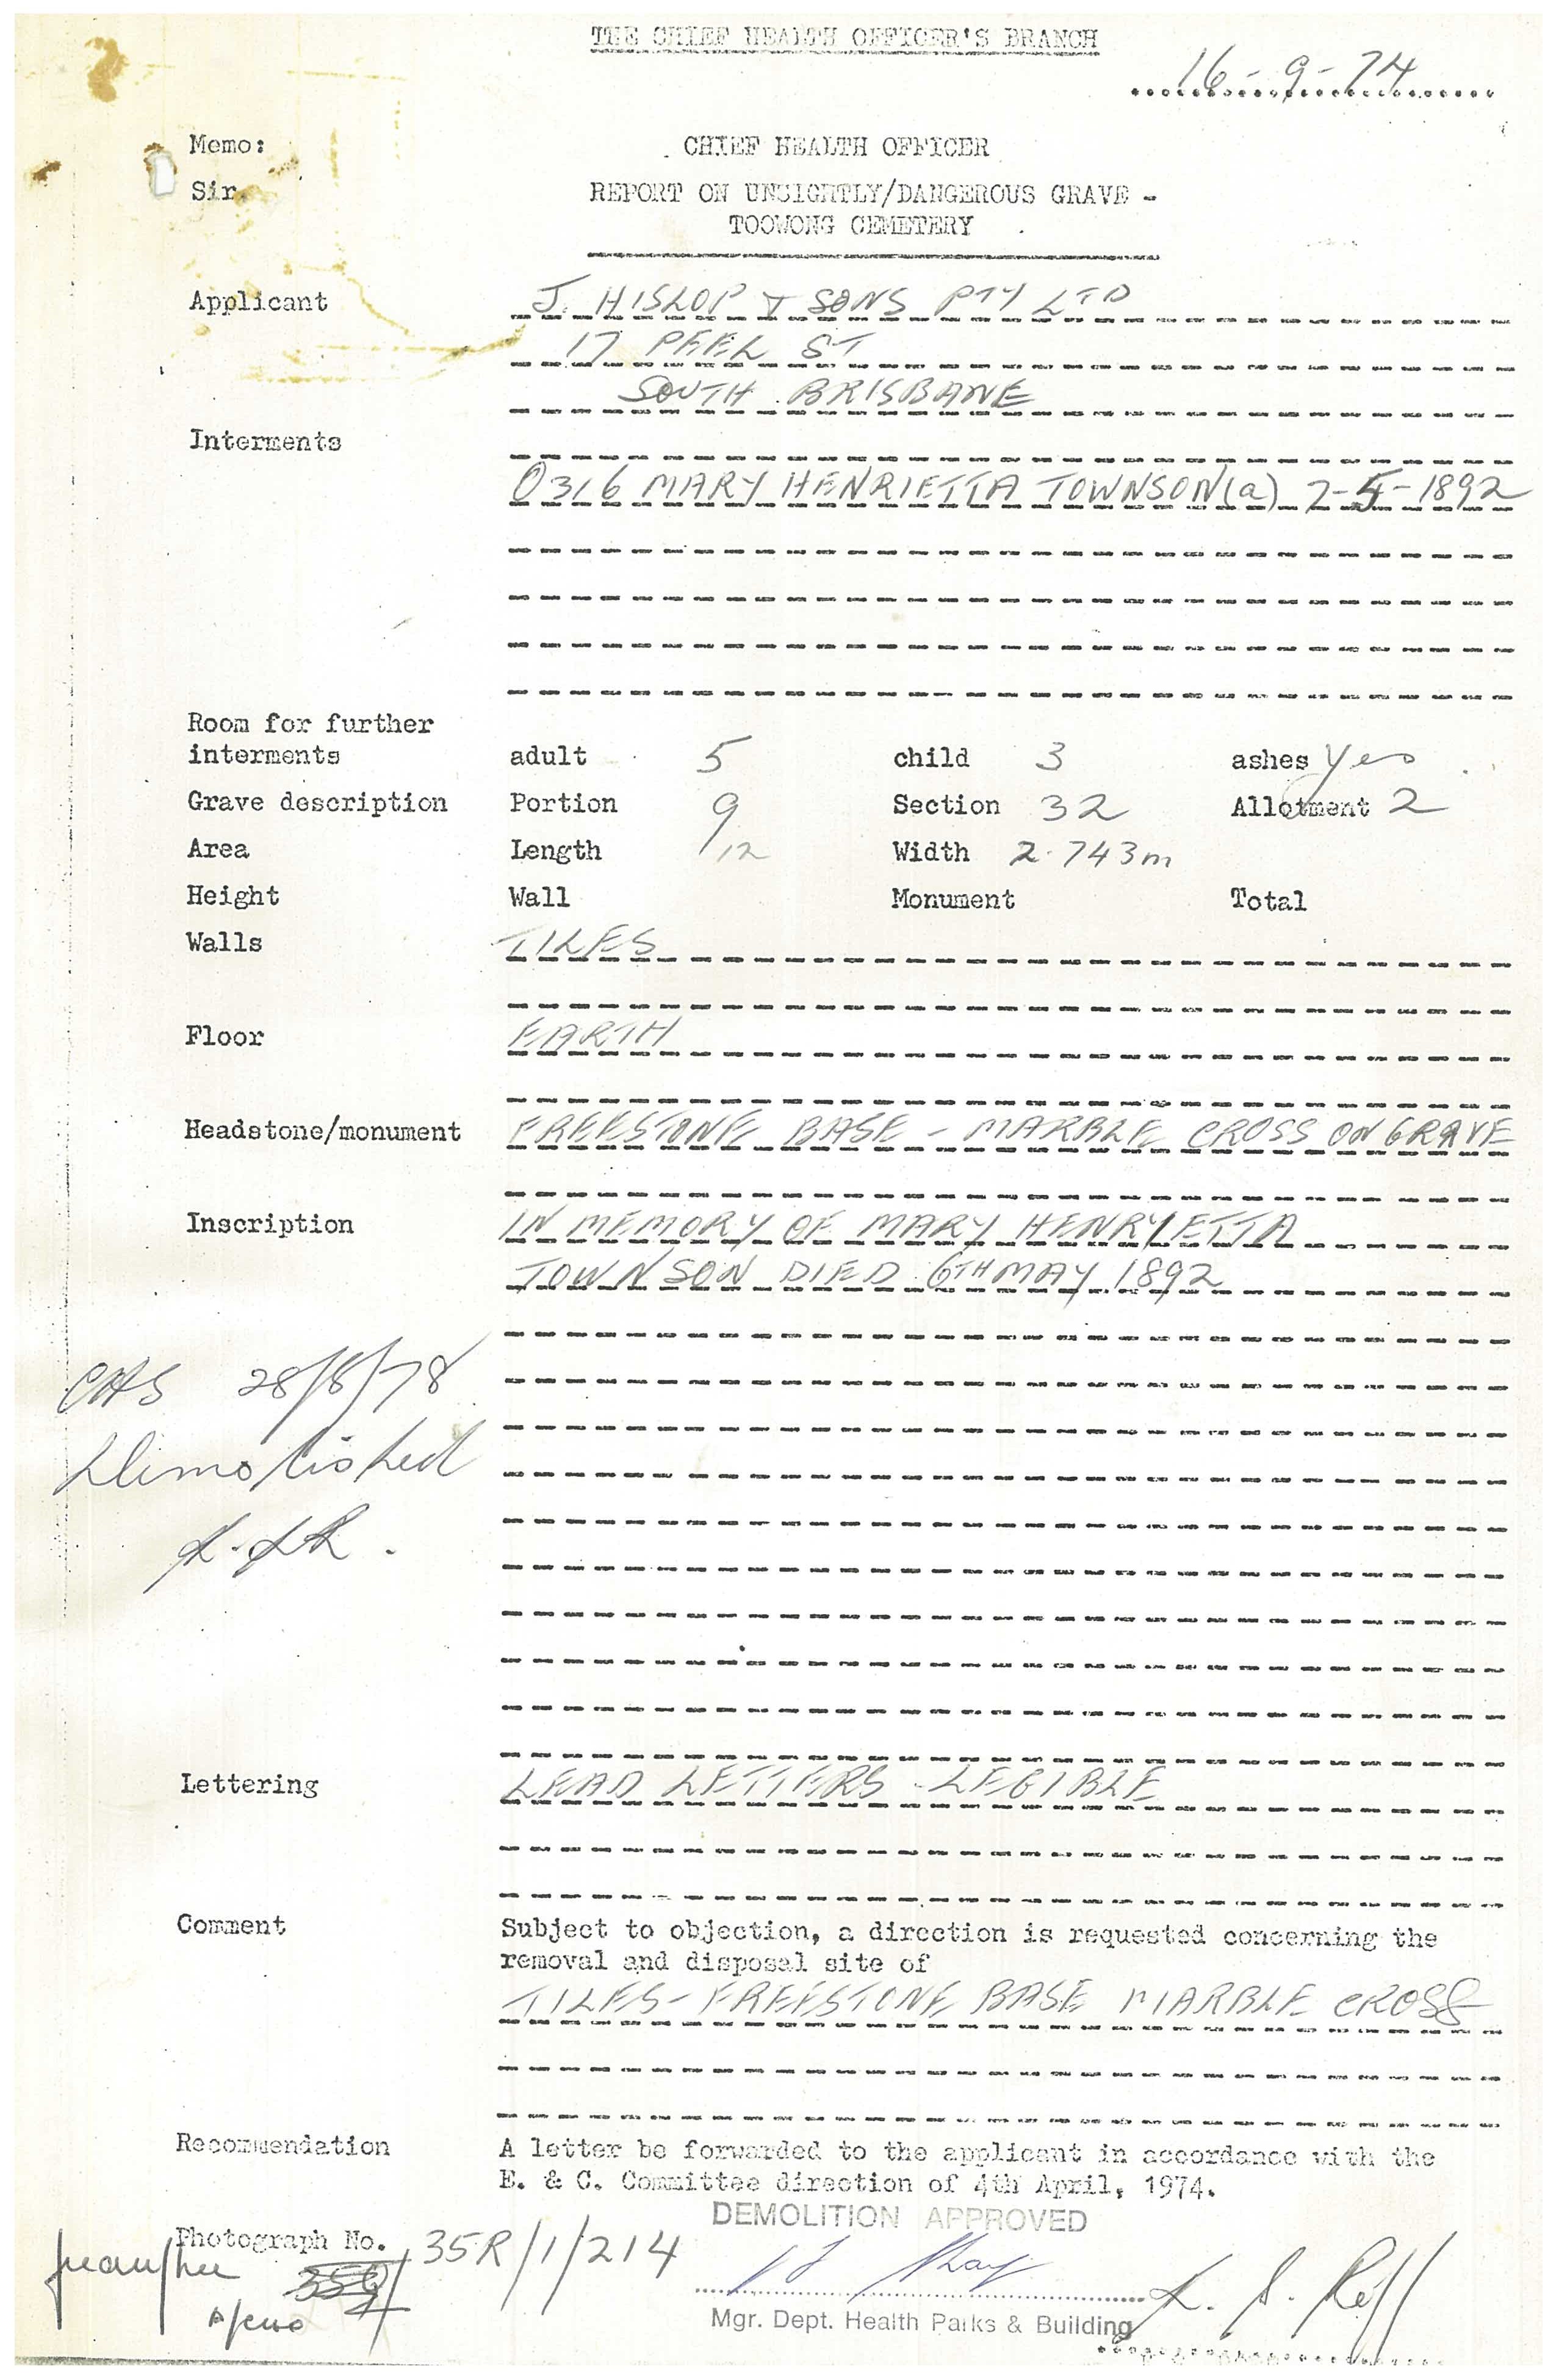 THE CHIEF HEALTH OFFICER'S BRANCH
16-9-74
Memo: CHIEF HEALTH OFFICER
Sir, REPORT ON UNSIGHTLY/DANGEROUS GRAVE -
TOOWONG CEMETERY
Applicant J. HISLOP & SONS PTY LTD
17 PEEL ST
SOUTH BRISBANE
Interments
0316 MARY HENRIETTA TOWNSON (a) 7-5-1892
Room for further
interments adult 5 child 3 ashes Yes
Grave description Portion 9 Section 32 Allotment 2
Area Length /12 Width 2.743m
Height Wall Monument Total
Walls TILES
Floor EARTH
Headstone/monument FREESTONE BASE - MARBLE CROSS ON GRAVE
Inscription IN MEMORY OF MARY HENRYETTA
TOWNSON DIED 6TH MAY 1892
28/8/78
Demolished
Lettering LEAD LETTERS - LEGIBLE
Comment Subject to objection, a direction is requested concerning the
removal and disposal site of
TILES - FREESTONE BASE MARBLE CROSS
Recommendation A letter be forwarded to the applicant in accordance with the
E. & C. Committee direction of 4th April, 1974.
DEMOLITION APPROVED
Photograph No. 35R/1/214
Mgr. Dept. Health Parks & Building